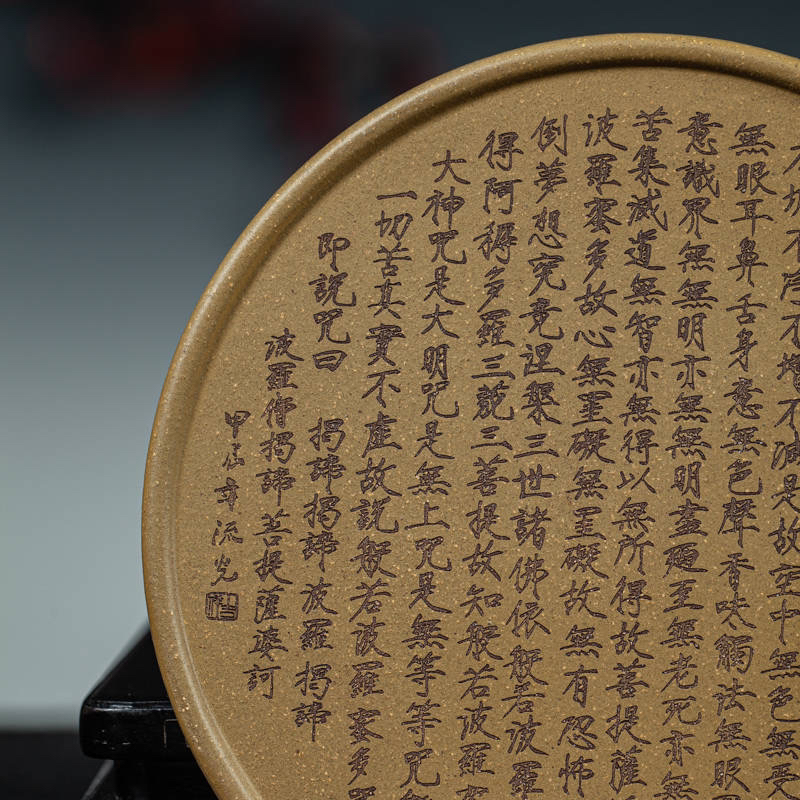 不垢不淨不增不減是故空中無色無受
無眼耳鼻舌身意無色聲香味觸法無眼
意識界無無明亦無無明盡廼至無老死亦無
苦集滅道無智亦無得以無所得故菩提薩
波羅蜜多故心無罣礙無罣礙故無有恐怖
倒夢想究竟涅槃三世諸佛依般若波羅
得阿耨多羅三藐三菩提故知般若波羅蜜
大神咒是大明咒是無上咒是無等等咒
一切苦真實不虛故說般若波羅蜜多咒
即說咒曰 揭諦揭諦波羅揭諦
波羅僧揭諦菩提薩婆訶
甲辰年流光